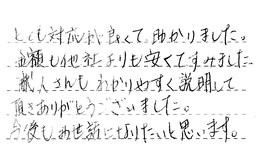 とても対応が良くて助かりました。
金額も他社よりも安くてすみました
職人さんもわかりやすく説明して
頂きありがとうございました。
今後もお世話になりたいと思います。